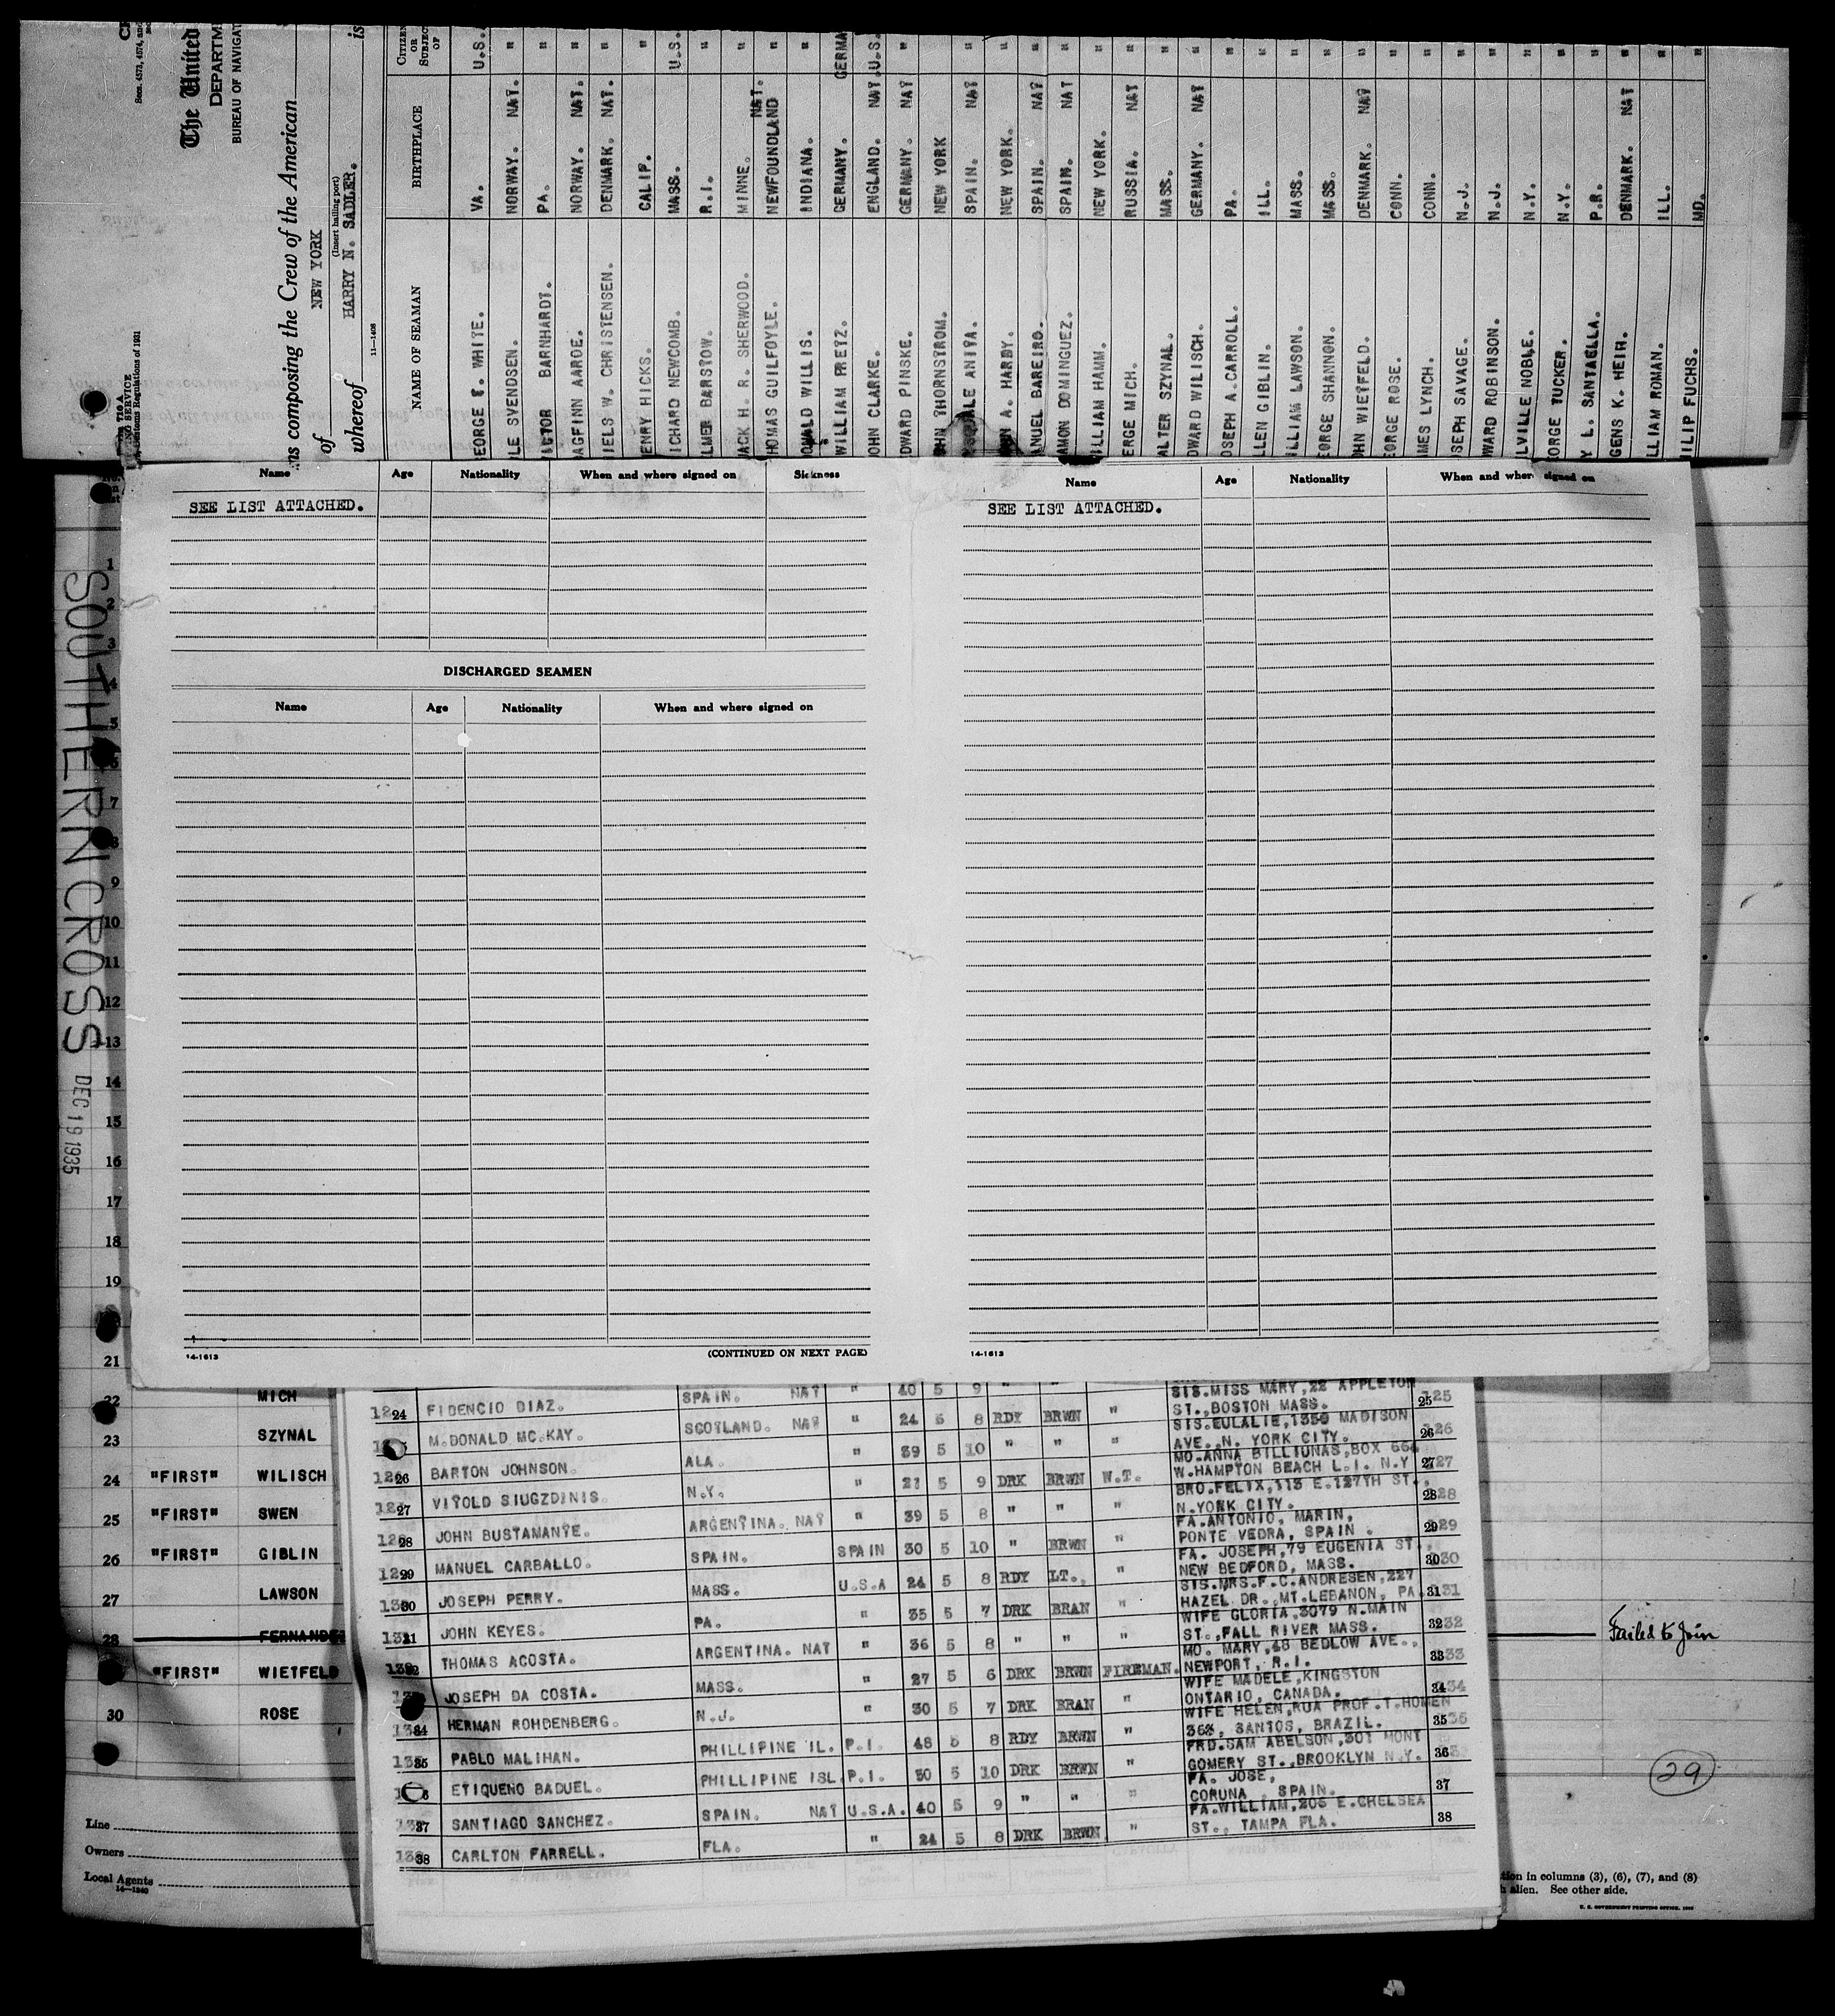 The United
DEPARTM
BUREAU OF NAVIGAT
Secs. 4573, 4574, and
ns composing the Crew of the American
of NEW YORK
(Insert hailing port)
whereof HARRY N. SADLER. is
11-1406
Customs Regulations of 1931
NAME OF SEAMAN BIRTHPLACE CITIZEN OR SUBJECT OF
EORGE T. WHITE. VA. U.S.
LE SVENDSEN. NORWAY. NAT. "
VICTOR BARNHARDT. PA. "
DAGFINN AAROE. NORWAY. NAT. "
NIELS W. CHRISTENSEN. DENMARK. NAT. "
ENRY HICKS. CALIF. "
ICHARD NEWCOMB. MASS. U.S.
LMER BARSTOW. R.I. "
ACK H. R. SHERWOOD. MINNE. "
HOMAS GUILFOYLE. NEWFOUNDLAND NAT. "
ONALD WILLIS. INDIANA. "
WILLIAM PRETZ. GERMANY. GERMA
OHN CLARKE. ENGLAND. NAT. U.S.
DWARD PINSKE. GERMANY. NAT "
OHN THORNSTROM. NEW YORK
ANIYA. SPAIN. NAT "
A. HARDY. NEW YORK. "
ANUEL BAREIRO. SPAIN. NAT "
AMON DOMINGUEZ. SPAIN. NAT "
ILLIAM HAMM. NEW YORK. "
ERGE MICH. RUSSIA. NAT "
ALTER SZYNAL. MASS. "
DWARD WILISCH. GERMANY. NAT "
OSEPH A. CARROLL. PA. "
LLEN GIBLIN. ILL. "
ILLIAM LAWSON. MASS. "
EORGE SHANNON. MASS. "
OHN WIETFELD. DENMARK. NAT "
EORGE ROSE. CONN. "
MES LYNCH. CONN. "
SEPH SAVAGE. N.J. "
WARD ROBINSON. N.J. "
LVILLE NOBLE. N.Y. "
EORGE TUCKER. N.Y. "
Y L. SANTAELLA. P.R. "
GENS K. HEIR. DENMARK. NAT "
LLIAM ROMAN. ILL. "
ILIP FUCHS. MD. "
Name Age Nationality When and where signed on Sickness
SEE LIST ATTACHED.
DISCHARGED SEAMEN
Name Age Nationality When and where signed on
14-1613
(CONTINUED ON NEXT PAGE)
Name Age Nationality When and where signed on
SEE LIST ATTACHED.
14-1613
SOUTHERN CROSS DEC 19 1935
1
2
3
4
5
6
7
8
9
10
11
12
13
14
15
16
17
18
19
21
22 MICH
23 SZYNAL
24 "FIRST" WILISCH
25 "FIRST" SWEN
26 "FIRST" GIBLIN
27 LAWSON
28 FERNANDE Failed to Join
"FIRST" WIETFELD
30 ROSE
29
Line
Owners
Local Agents
14-1240
24 FIDENCIO DIAZ. SPAIN. NAT " 40 5 9 " " " SIS.MISS MARY,22 APPLETON ST.,BOSTON MASS. 25
M.DONALD MC.KAY. SCOTLAND. NAT " 24 5 8 RDY BRWN " SIS.EULALIE,1350 MADISON AVE.,N. YORK CITY. 26
26 BARTON JOHNSON. ALA. " 39 5 10 " " " MO.ANNA BILLIUNAS,BOX 664 W.HAMPTON BEACH L.I. N.Y 27
27 VITOLD SIUGZDINIS. N.Y. " 21 5 9 DRK BRWN W.T. BRO.FELIX,113 E.127TH ST., N.YORK CITY. 28
28 JOHN BUSTAMANTE. ARGENTINA. NAT " 39 5 8 " " " FA.ANTONIO, MARIN, PONTE VEDRA, SPAIN . 29
29 MANUEL CARBALLO. SPAIN. SPAIN 30 5 10 " BRWN " FA. JOSEPH,79 EUGENIA ST., NEW BEDFORD, MASS. 30
30 JOSEPH PERRY. MASS. U.S.A 24 5 8 RDY LT., " SIS.MRS.F.C.ANDRESEN,227 HAZEL DR.,MT.LEBANON, PA. 31
JOHN KEYES. PA. " 35 5 7 DRK BRAN " WIFE GLORIA,3079 N.MAIN ST.,FALL RIVER MASS. 32
THOMAS ACOSTA. ARGENTINA. NAT " 36 5 8 " " " MO. MARY,48 BEDLOW AVE., NEWPORT, R.I. 33
JOSEPH DA COSTA. MASS. " 27 5 6 DRK BRWN FIREMAN. WIFE MADELE,KINGSTON ONTARIO, CANADA. 34
34 HERMAN ROHDENBERG. N.J. " 30 5 7 DRK BRAN " WIFE HELEN,RUA PROF.T.HOMEN 363, SANTOS, BRAZIL. 35
35 PABLO MALIHAN. PHILLIPINE IL. P.I. 48 5 8 RDY BRWN " FRD.SAM ABELSON,301 MONT GOMERY ST.,BROOKLYN N.Y. 36
ETIQUENO BADUEL. PHILLIPINE ISL. P.I. 30 5 10 DRK BRWN " FA. JOSE, CORUNA, SPAIN. 37
37 SANTIAGO SANCHEZ. SPAIN. NAT U.S.A. 40 5 9 " " " FA.WILLIAM,205 E.CHELSEA ST., TAMPA FLA. 38
38 CARLTON FARRELL. FLA. " 24 5 8 DRK BRWN "
tion in columns (3), (6), (7), and (8)
h alien. See other side.
U. S. GOVERNMENT PRINTING OFFICE